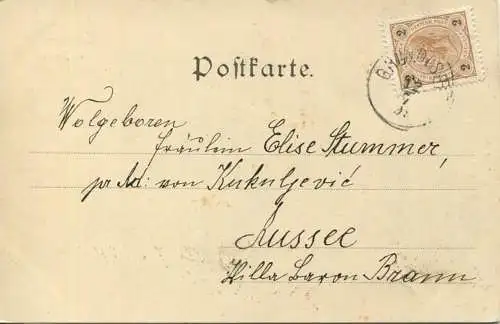 2
2
Postkarte.
Wolgeboren
Fräulein Elise Stummer,
pr Ad: von Kukuljević
Aussee
Villa Baron Braun